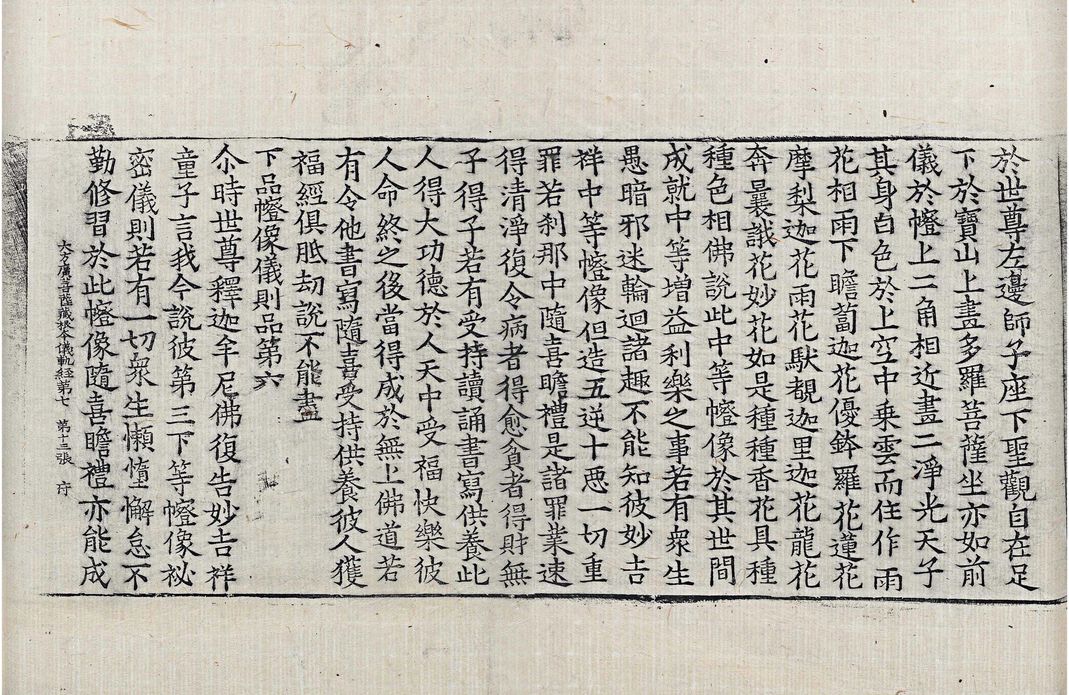 於世尊左邊師子座下聖觀自在足
下於寶山上畫多羅菩薩坐亦如前
儀於㡧上二角相近畫二淨光天子
其身白色於上空中乘雲而住作雨
花相雨下瞻蔔迦花優鉢羅花蓮花
摩梨迦花雨花馱覩迦里迦花龍花
奔曩誐花妙花如是種種香花具種
種色相佛說此中等㡧像於其世間
成就中等增益利樂之事若有衆生
愚暗邪迷輪迴諸趣不能知彼妙吉
祥中等㡧像但造五逆十惡一切重
罪若刹那中隨喜瞻禮是諸罪業速
得清淨復令病者得愈貧者得財無
子得子若有受持讀誦書寫供養此
人得大功德於人天中受福快樂彼
人命終之後當得成於無上佛道若
有令他書寫隨喜受持供養彼人獲
福經俱胝劫說不能盡
下品㡧像儀則品第六
尒時世尊釋迦牟尼佛復告妙吉祥
童子言我今說彼第三下等㡧像祕
密儀則若有一切衆生懶憜懈怠不
勤修習於此㡧像隨喜瞻禮亦能成
大方廣菩薩藏根本儀軌經第七 第十三張 㡳